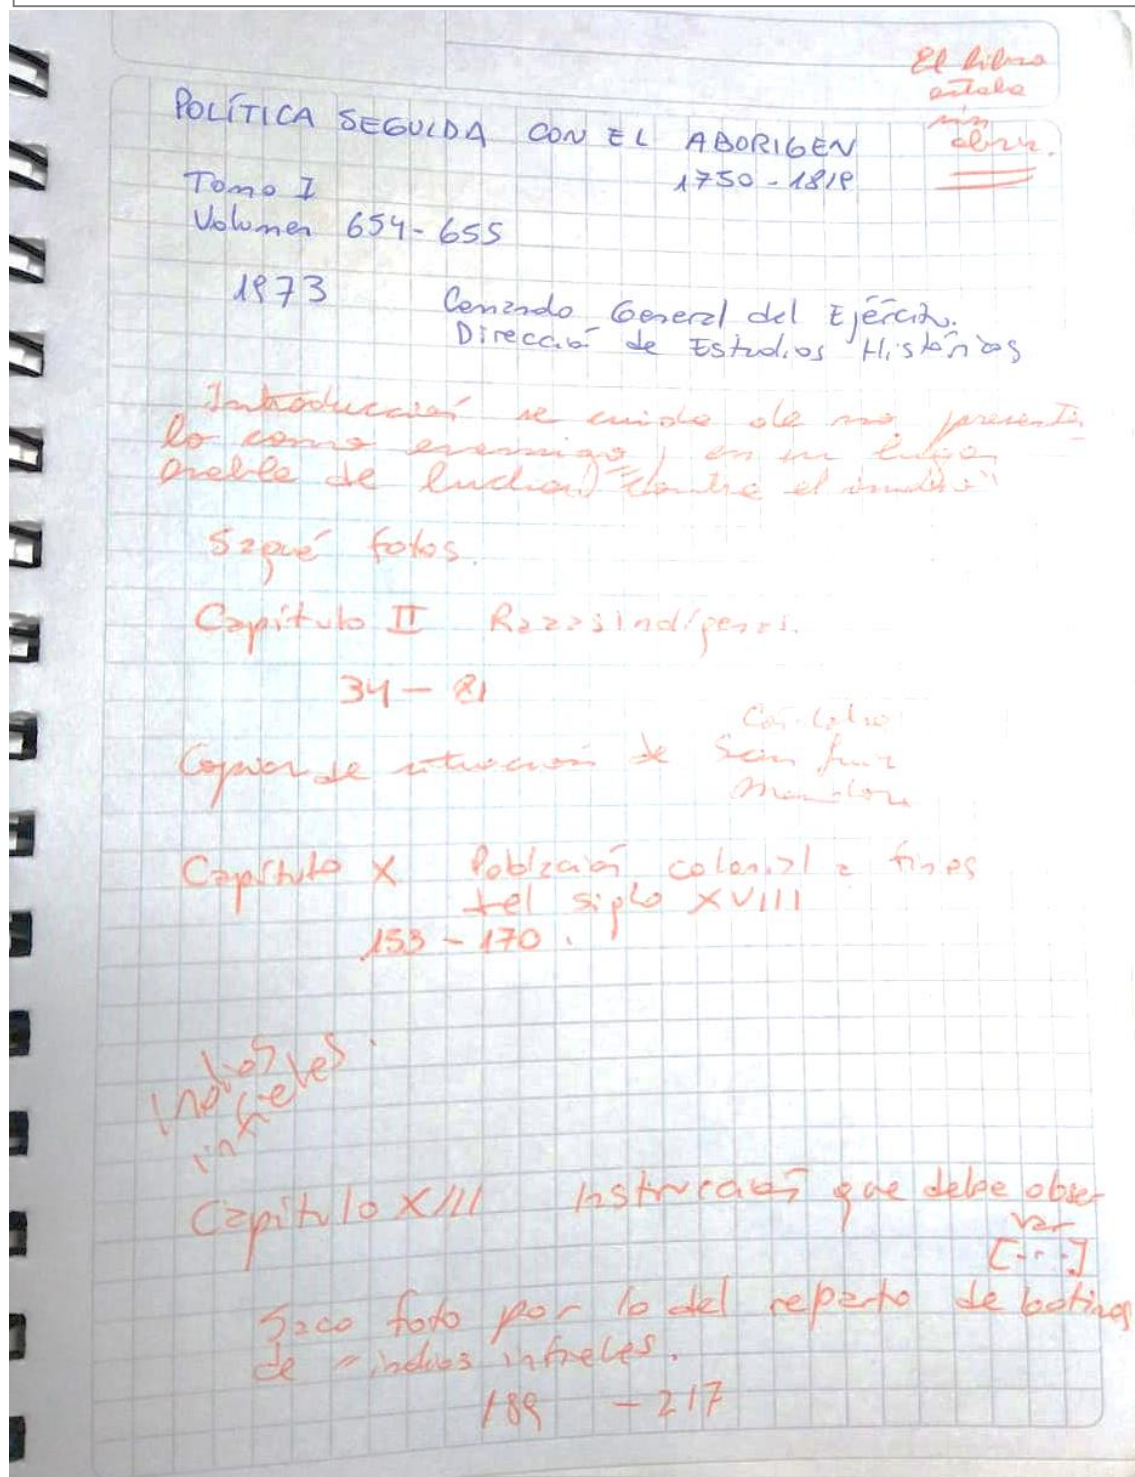 El libro
estaba
sin
abrir.
POLÍTICA SEGUIDA CON EL ABORIGEN
1750-1819
Tomo I
Volumen 654-655
1973
Comando General del Ejército.
Dirección de Estudios Históricos
Introducción se cuida de no presentar
lo como enemigo, en su lugar
habla de lucha "contra el indio"
Saqué fotos.
Capítulo II Razas indígenas.
34-81
Copiar de situación de
San Juan
Capítulo X Población colonial a fines
del siglo XVIII
153-170.
Indios
infieles.
Capítulo XIII Instrucción que debe obser-
var
[...]
Saco foto por lo del reparto de botines
de indios infieles.
189 - 217